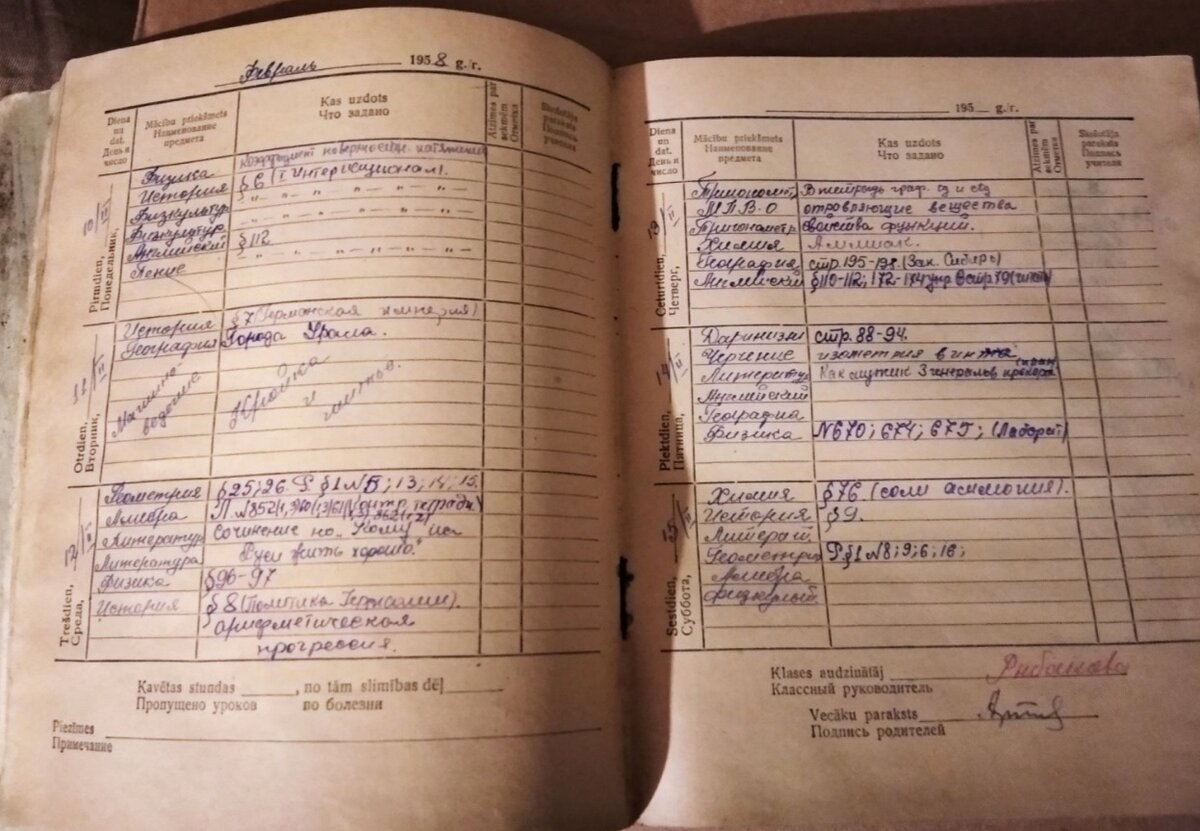 Февраль 1958 g./г.
Diena un dat. День и число
Mācību priekšmets Наименование предмета
Kas uzdots Что задано
Atzīmes par sekmēm Отметка
Skolotāja paraksts Подпись учителя
Pirmdien, Понедельник, 10/II
Физика Коэффициент поверхностн. натяжения
История § 6 (I Интернационал).
Физкультур " — " — " — " — " —
Физкультур " — " — " — " — " —
Английский § 112
Пение " — " — " — " —
Otrdien, Вторник, 11/II
История § 7 (Германская империя)
География Города Урала.
Машиноведение Кройка и шитье.
Trešdien, Среда, 12/II
Геометрия § 25; 26. § 1 № 5; 13; 14; 15.
Алгебра П. № 852
Литератур Сочинение по „Кому на
Литература Руси жить хорошо."
Физика § 96-97
История § 8 (Политика Германии).
арифметическая
прогрессия.
Kavētas stundas , no tām slimības dēļ
Пропущено уроков по болезни
Piezīmes
Примечание
195 g./г.
Diena un dat. День и число
Mācību priekšmets Наименование предмета
Kas uzdots Что задано
Atzīmes par sekmēm Отметка
Skolotāja paraksts Подпись учителя
Ceturtdien, Четверг, 13/II
Тригономт, В тетрадь граф. tg и ctg
М.П.В.О отровляющие вещества
Тригонометр. свойства функций.
Химия Аммиак.
География стр 195-198 (Зап. Сибирь)
Английский § 110-112; 172-174 упр
Piektdien, Пятница, 14/II
Дарвинизм стр. 88-94.
Черчение изометрия
Литератур Как мужик 3 генералов прокорм
Английский
География
Физика № 670; 674; 675; (Лаборат)
Sestdien, Суббота, 15/II
Химия § 76 (соли аммония).
История § 9.
Литерат.
Геометрия § 1 № 8; 9; 6; 16;
Алгебра
Физкульт.
Klases audzinātāj
Классный руководитель
Vecāku paraksts
Подпись родителей